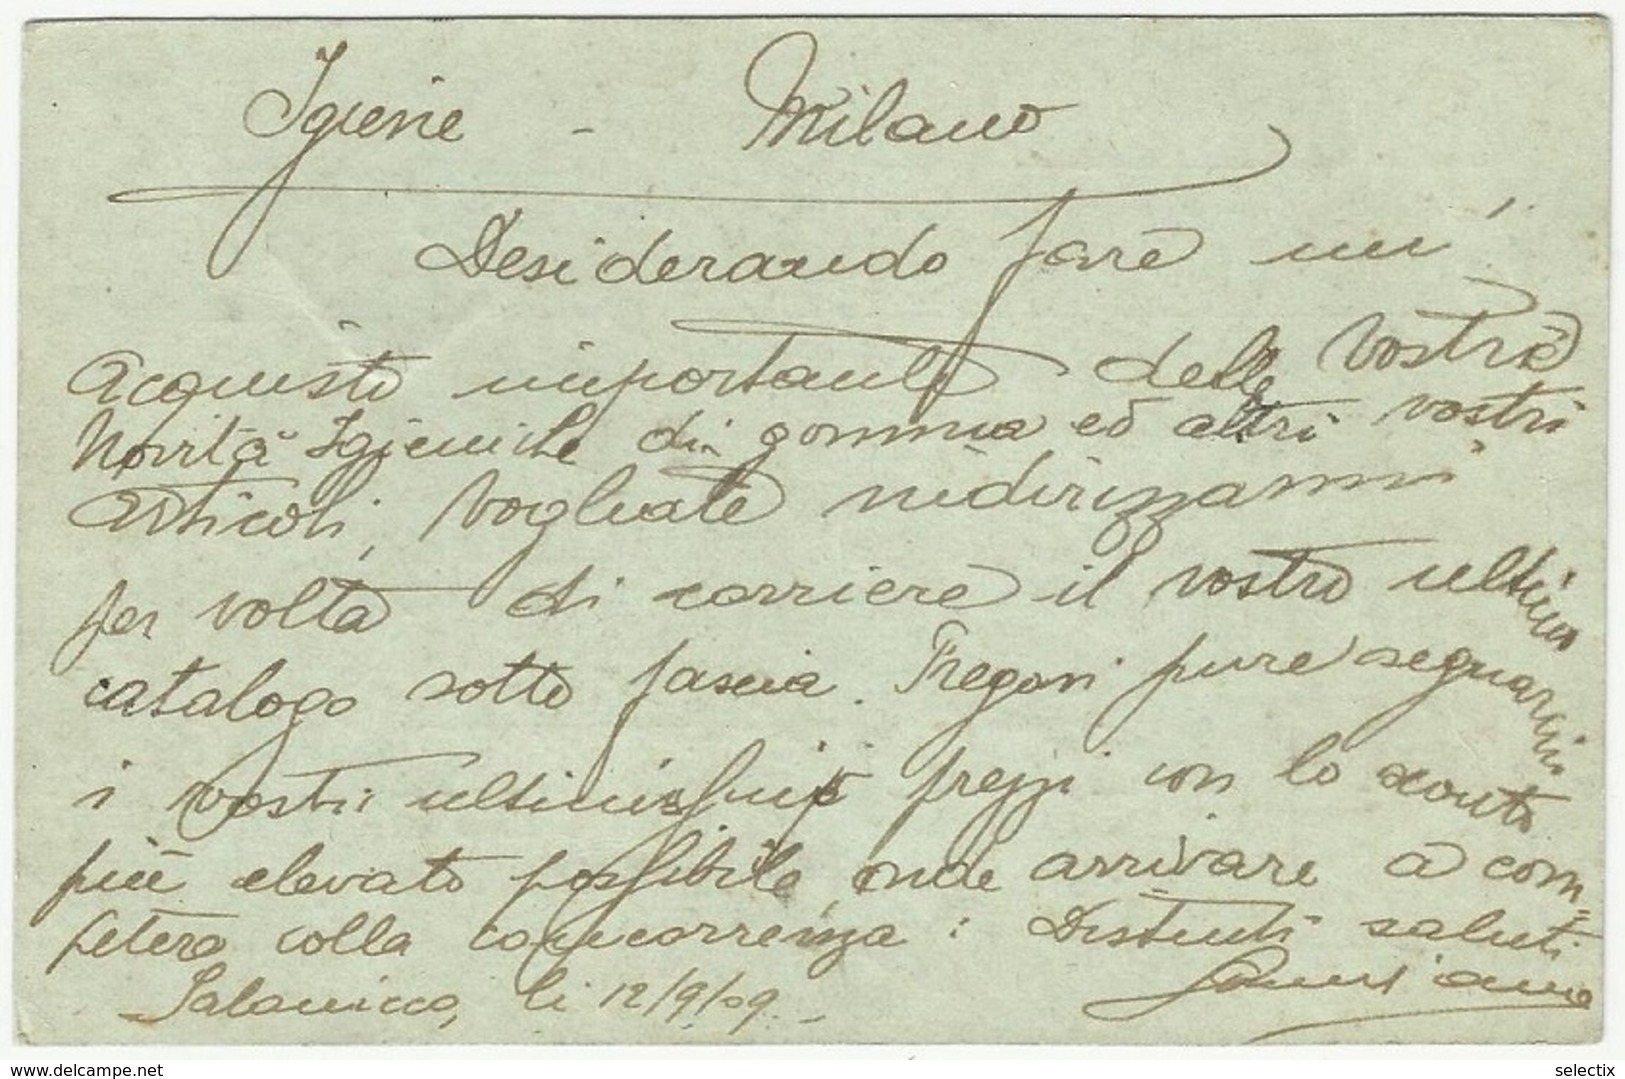 Igiene - Milano
Desiderando fare un'
acquisto importante delle vostre
Novità Igieniche di gomma ed altri vostri
articoli, vogliate indirizzarmi
per volta di corriere il vostro ultimo
catalogo sotto fascia. Pregovi pure segnarmi
i vostri ultimissimi prezzi con lo sconto
più elevato possibile, onde arrivare a com=
petere colla concorrenza : Distinti saluti
Salonicco, li 12/9/09
www.delcampe.net
selectix